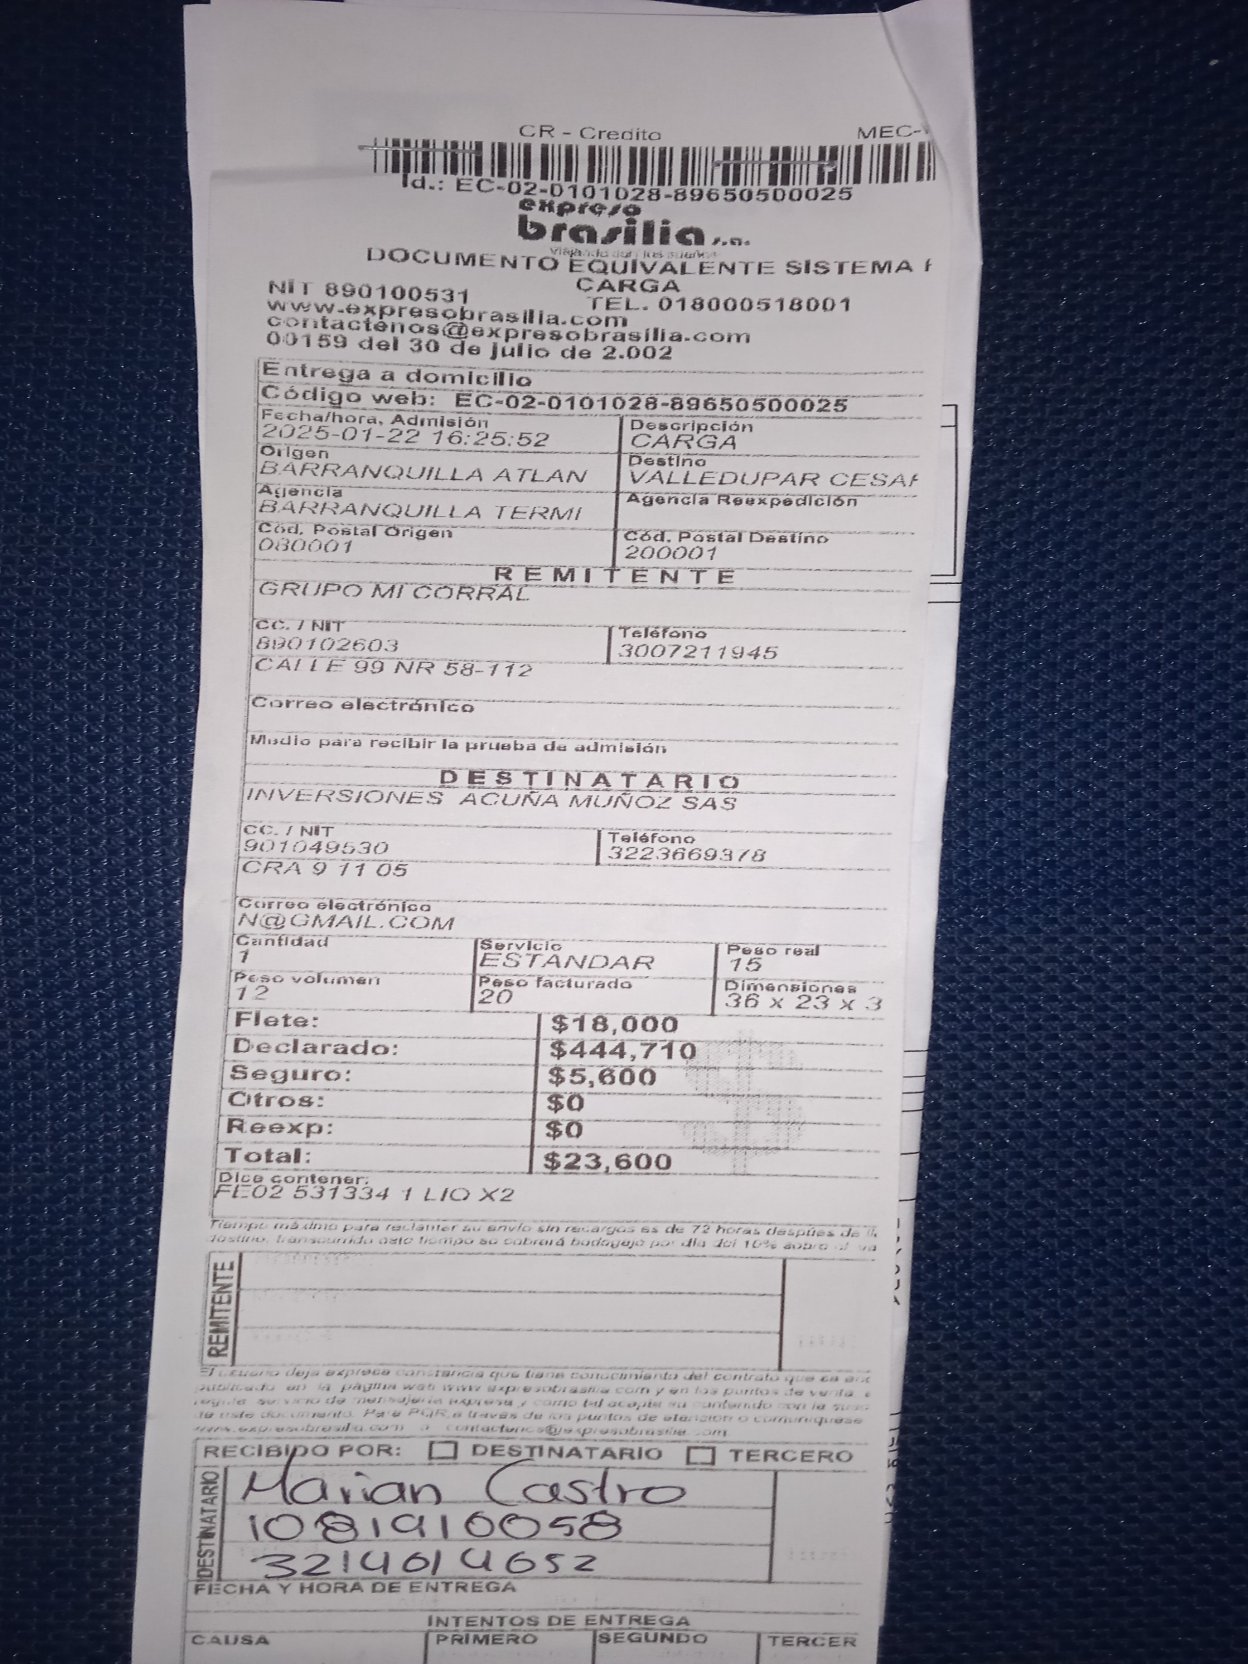 CR - Credito MEC-
Id.: EC-02-0101028-89650500025
expreso
brasilia s.a.
DOCUMENTO EQUIVALENTE SISTEMA
CARGA
NIT 890100531 TEL. 018000518001
www.expresobrasilia.com
contactenos@expresobrasilia.com
00159 del 30 de julio de 2.002
Entrega a domicilio
Código web: EC-02-0101028-89650500025
Fecha/hora, Admisión Descripción
2025-01-22 16:25:52 CARGA
Origen Destino
BARRANQUILLA ATLAN VALLEDUPAR CESAR
Agencia Agencia Reexpedición
BARRANQUILLA TERMI
Cód. Postal Origen Cód. Postal Destino
080001 200001
REMITENTE
GRUPO MI CORRAL
CC. / NIT Teléfono
890102603 3007211945
CALLE 99 NR 58-112
Correo electrónico
Medio para recibir la prueba de admisión
DESTINATARIO
INVERSIONES ACUÑA MUÑOZ SAS
CC. / NIT Teléfono
901049530 3223669378
CRA 9 11 05
Correo electrónico
N@GMAIL.COM
Cantidad Servicio Peso real
1 ESTANDAR 15
Peso volumen Peso facturado Dimensiones
12 20 36 x 23 x 3
Flete: $18,000
Declarado: $444,710
Seguro: $5,600
Otros: $0
Reexp: $0
Total: $23,600
Dice contener:
FE02 531334 1 LIO X2
Tiempo máximo para reclamar su envío sin recargos es de 72 horas después de
destino, transcurrido este tiempo se cobrará bodegaje por día del 10% sobre el va
REMITENTE
El usuario deja expresa constancia que tiene conocimiento del contrato que se enc
publicado en la página web www.expresobrasilia.com y en los puntos de venta
regula servicio de mensajería expresa y como tal acepta su contenido con la
de este documento. Para PQR a través de los puntos de atención o comuníquese
www.expresobrasilia.com o contactenos@expresobrasilia.com
RECIBIDO POR: DESTINATARIO TERCERO
DESTINATARIO
Marian Castro
1081910058
3214614652
FECHA Y HORA DE ENTREGA
INTENTOS DE ENTREGA
CAUSA PRIMERO SEGUNDO TERCER